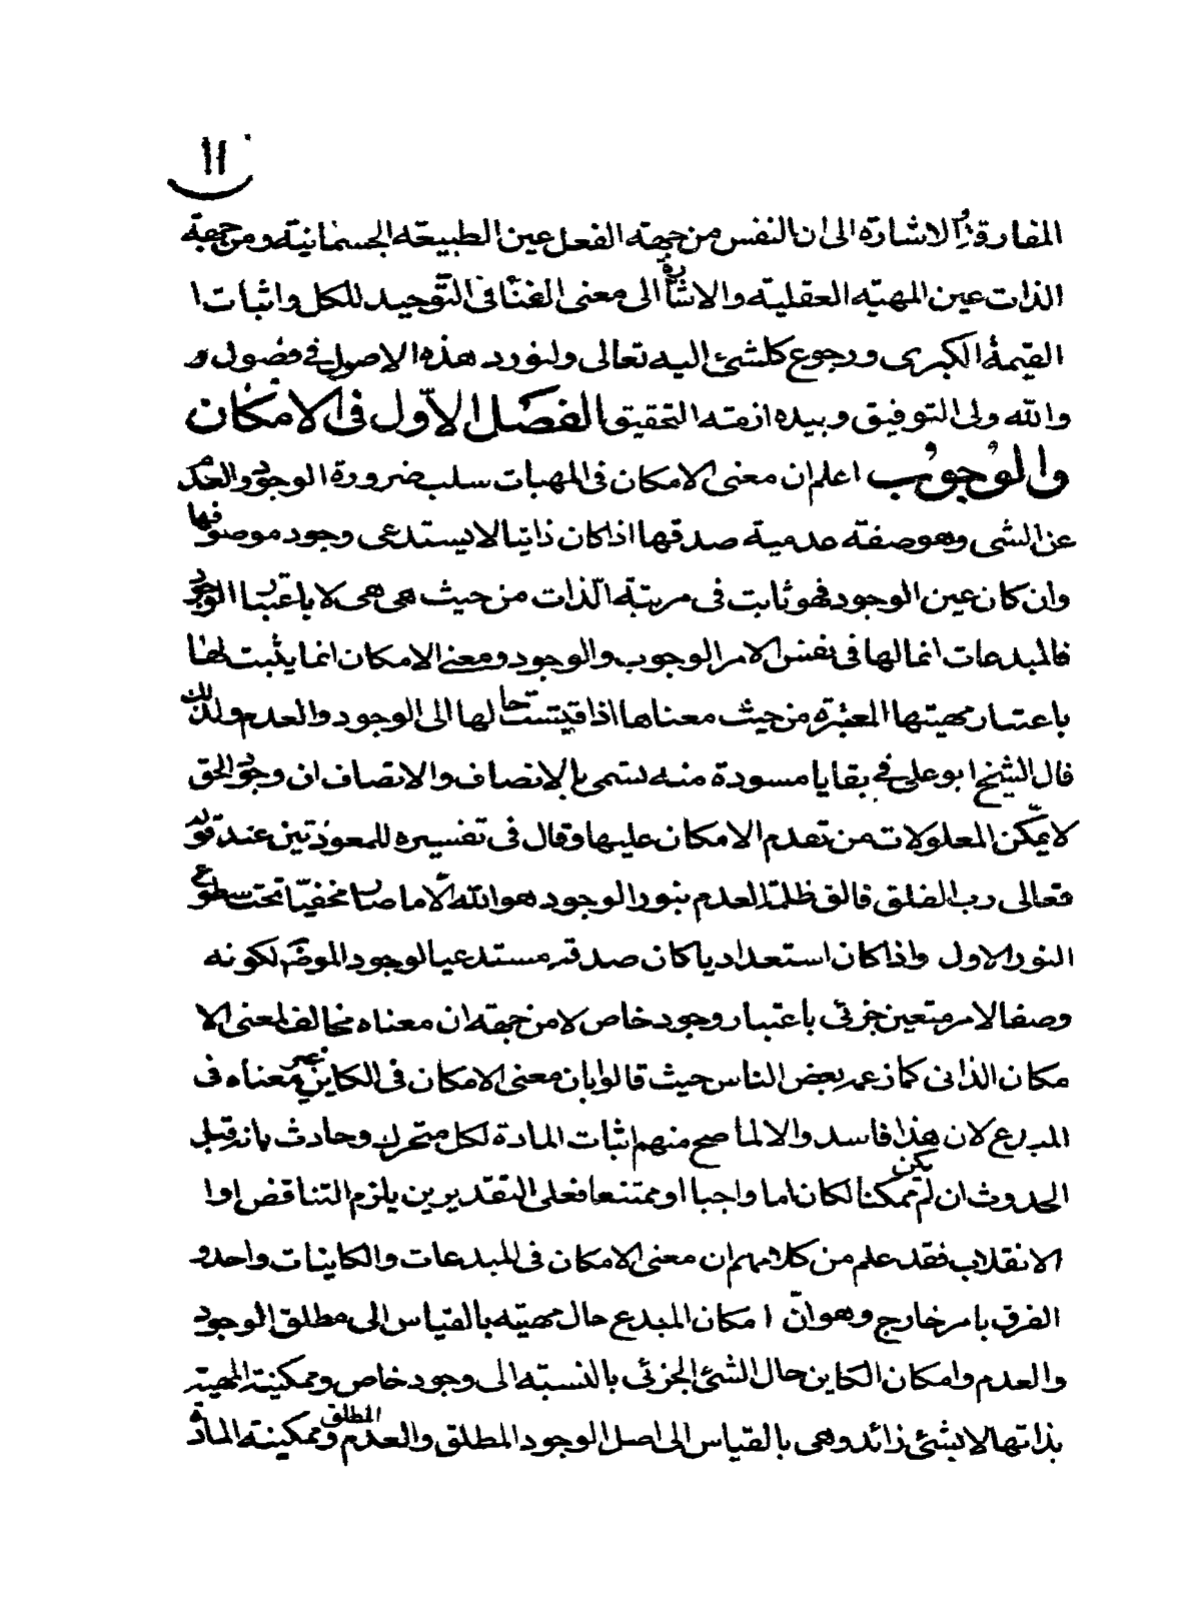 ١١
المفارقة و الاشارة الى ان النفس من جهته الفعل عين الطبيعه الجسمانية و من جهة
الذات عين المهيّه العقليّه والاشارة الى معنى الفنأ فى التوّحيد للكل و اثبات ا
القيمة الكبرى و رجوع كلشئ اليه تعالى ولنورد هذه الاصول فى فصول و
والله ولى التوفيق و بيده ازمّة التحقيق الفصل الاوّل فى الامكان
والوجوب اعلم ان معنى الامكان فى المهيات سلب ضرورة الوجود والعدم
عن الشى وهو صفة عدمية صدقها اذا كان ذاتيا لا يستدعى وجود موصوفها
وان كان عين الوجود فهو ثابت فى مرتبّة الذات من حيث هى هى لا باعتبار الوجود
فالمبدعات انما لها فى نفس الامر الوجوب والوجود ومعنى الامكان انما يثبت لها
باعتبار مهيتها المعتبرة من حيث معناها اذا قيست حالها الى الوجود والعدم ولذلك
قال الشيخ ابو على فى بقايا مسودة منه تسمى بالانصاف والاتصاف ان وجود الحق
لا يمكّن المعلولات من تقدم الامكان عليها وقال فى تفسيره للمعوذتين عند قوله
تعالى رب الفلق فالق ظلمة العدم بنور الوجود هو الله لّا ما صار مخفيّا تحت سطوع
النور الاول واذا كان استعداديا كان صدقه مستدعيا لوجود الموضوع لكونه
وصفا لامر متعين جزئى باعتبار وجود خاص لا من جهة ان معناه مخالف لمعنى الا
مكان الذاتى كما زعم بعض الناس حيث قالوا بان معنى الامكان فى الكاين غير معناه فى
المبدع لان هذا فاسد والا لما صح منهم اثبات المادة لكل متحرك و حادث بانه قبل
الحدوث ان لم يكن ممكنا لكان اما واجبا او ممتنعا فعلى التقديرين يلزم التناقض او ا
لانقلاب فقد علم من كلامهم ان معنى الامكان فى المبدعات والكاينات واحد و
الفرق بامر خارج وهو انّ امكان المبدع حال مهيّته بالقياس الى مطلق الوجود
والعدم وامكان الكاين حال الشئ الجزئى بالنسبة الى وجود خاص وممكنية المهية
بذاتها لا بشئ زائد وهى بالقياس الى اصل الوجود المطلق والعدم المطلق وممكنية المادة